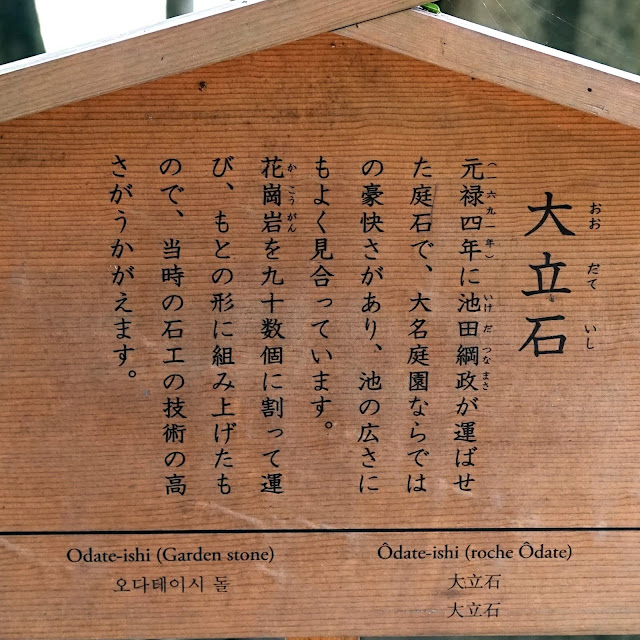 大立石
おお だて いし
元禄四年に池田綱政が運ばせ
(一六九一年) いけ だ つな まさ
た庭石で、大名庭園ならでは
の豪快さがあり、池の広さに
もよく見合っています。
花崗岩を九十数個に割って運
か こう がん
び、もとの形に組み上げたも
ので、当時の石工の技術の高
さがうかがえます。
Odate-ishi (Garden stone)
오다테이시 돌
Ôdate-ishi (roche Ôdate)
大立石
大立石